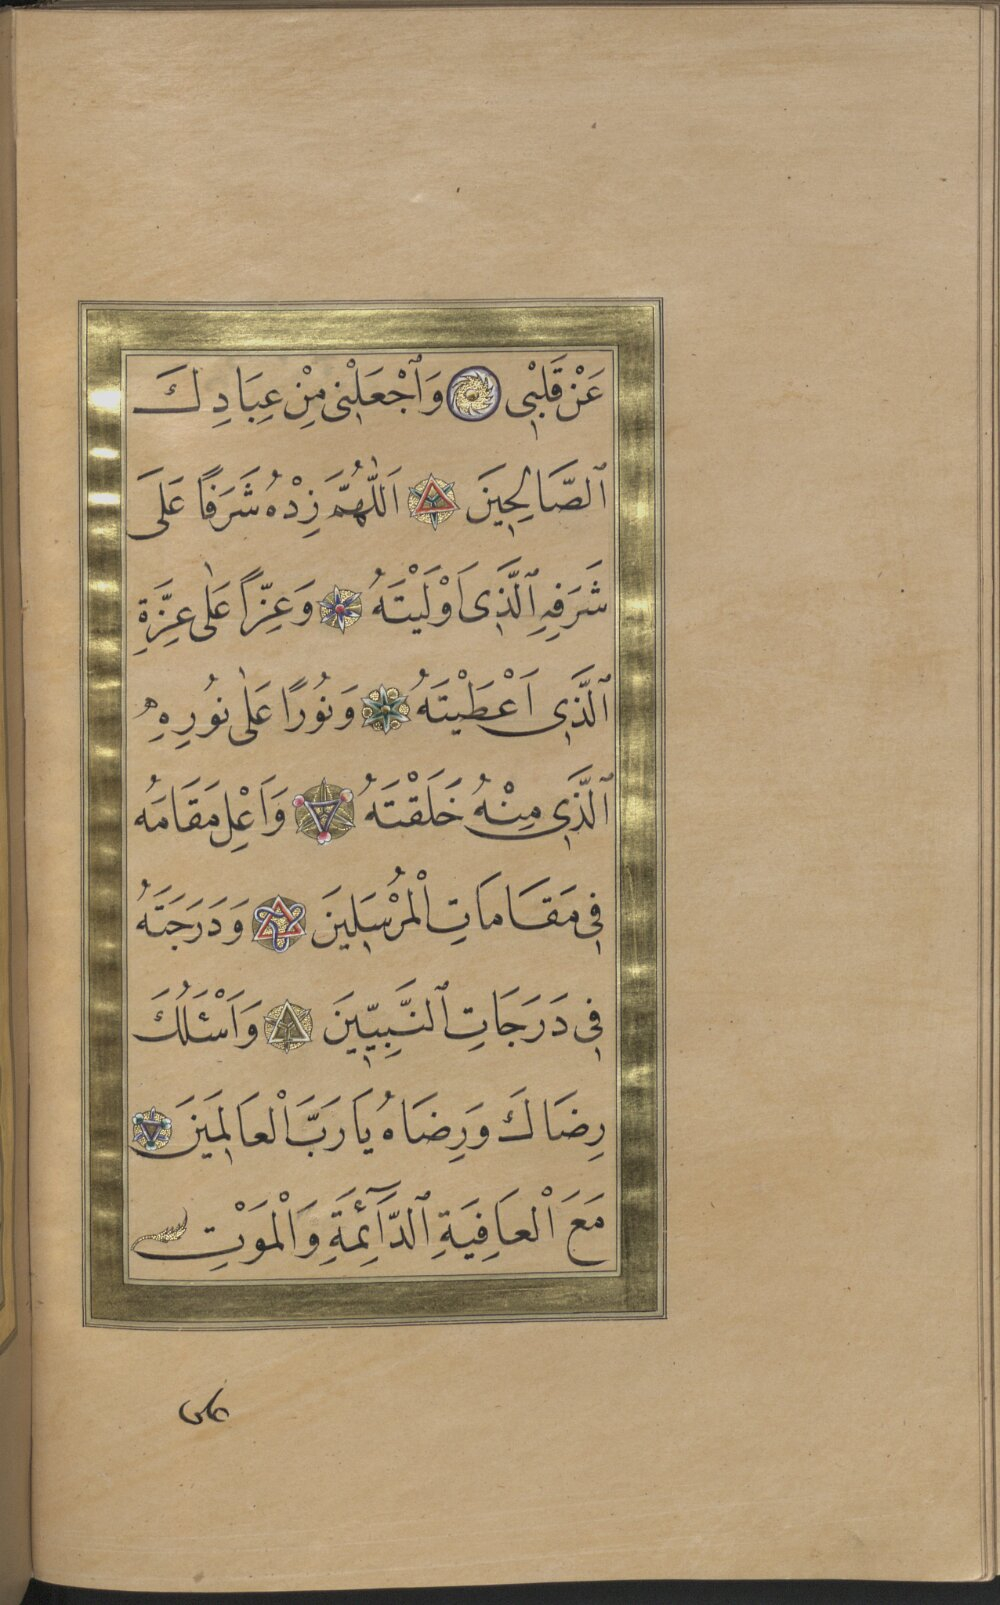 عَنْ قَلْبِي وَٱجْعَلْنِي مِنْ عِبَادِكَ
ٱلصَّالِحِينَ اَللّٰهُمَّ زِدْهُ شَرَفًا عَلَى
شَرَفِهِ ٱلَّذِي اَوْلَيْتَهُ وَعِزًّا عَلٰى عِزَّةِ
ٱلَّذِي اَعْطَيْتَهُ وَنُورًا عَلٰى نُورِهِ
ٱلَّذِي مِنْهُ خَلَقْتَهُ وَاَعْلِ مَقَامَهُ
فِي مَقَامَاتِ الْمُرْسَلِينَ وَدَرَجَتَهُ
فِي دَرَجَاتِ ٱلنَّبِيِّينَ وَاَسْئَلُكَ
رِضَاكَ وَرِضَاهُ يَا رَبَّ الْعَالَمِينَ
مَعَ الْعَافِيَةِ ٱلدَّآئِمَةِ وَالْمَوْتِ
على